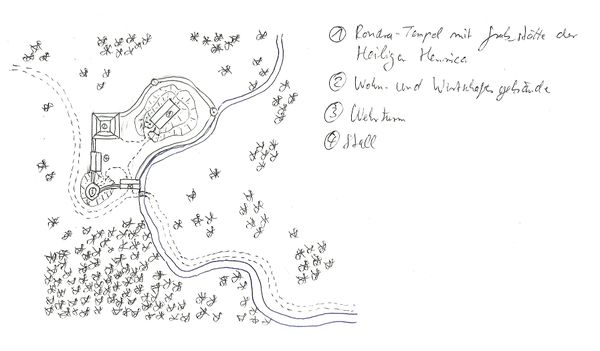 ① Rondra-Tempel mit Grabstätte der
Heiligen Henrica
② Wohn- und Wirtschaftsgebäude
③ Wehrturm
④ Stall